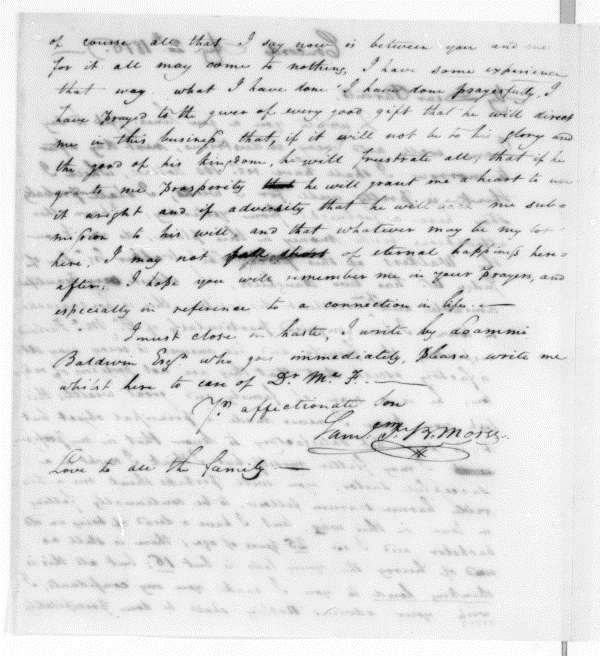 of course all that I say now is between you and me
for it all may come to nothing, I have some experience
that way what I have done I have done prayerfully, I
have prayed to the giver of every good gift that he will direct
me in this business, that, if it will not be to his glory and
the good of his Kingdom, he will frustrate all, that if he
grants me prosperity he will grant me a heart to use
it aright and if adversity that he will me sub=
mission to his will, and that whatever may be my lot
here, I may not fall short of eternal happiness here=
after, I hope you will remember me in your prayers, and
especially in reference to a connection in life. —
I must close in haste, I write by
Baldwin Esqr who goes immediately, Please write me
whilst here to care of Dr Mc F. —
Yr affectionate Son
Saml F. B. Morse.
Love to all the family —